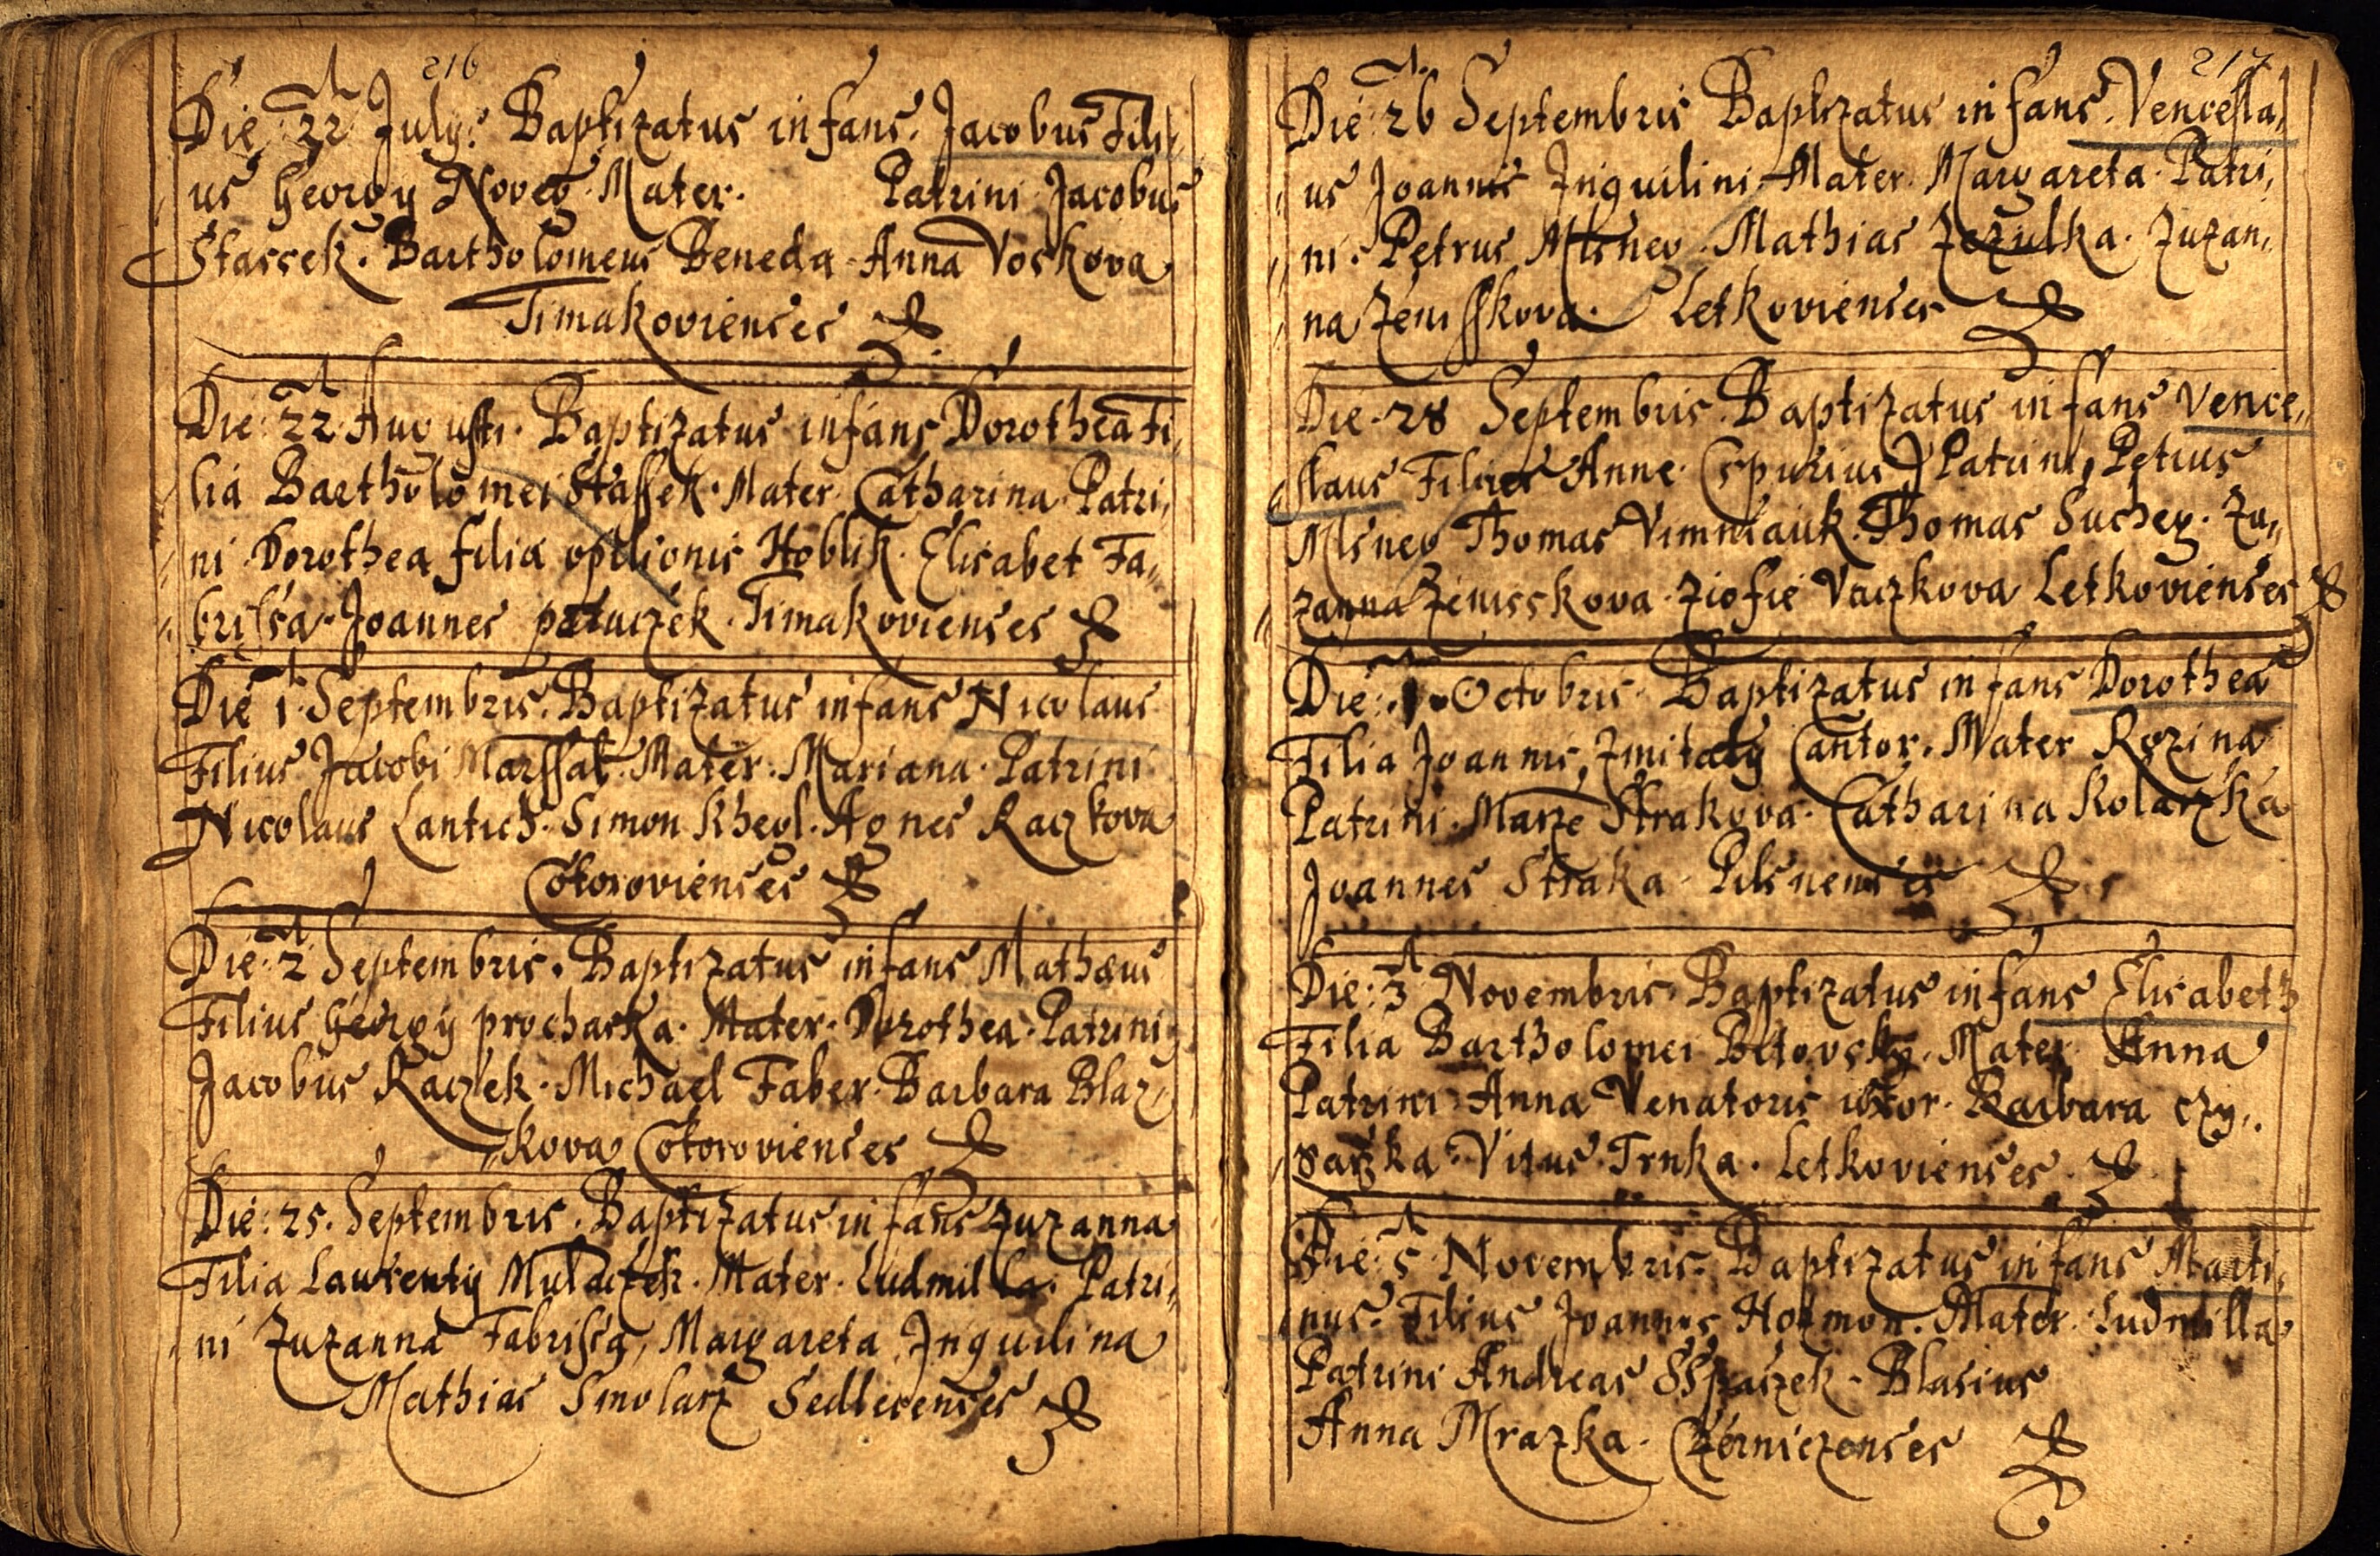 216
Die: 22 July: Baptizatus infans. Jacobus Fili,,
us Georgy Novey. Mater. Patrini Jacobus
Stassek. Bartholomeus Beneda. Anna Voskova
Timakovienses
Die: 22. Augusti. Baptizatus infans Dorothea Fi,,
lia Bartholomei Stassek. Mater Catharina. Patri,,
ni. Dorothea filia opilionis Hoblik. Elisabet Fa,,
brissa. Joannes patuczek. Timakovienses
Die 1. Septembris. Baptizatus infans Nicolaus
Filius Jacobi Marssal. Mater. Mariana. Patrini
Nicolaus Lantich. Simon Kheyl. Agnes Raczkova
Cotorovienses
Die: 2 Septembris. Baptizatus infans Mathæus
Filius Georgy prochaska. Mater. Dorothea. Patrini
Jacobus Raczek. Michael Faber. Barbara Blaz,,
kova Cotorovienses
Die: 25. Septembris. Baptizatus infans Zuzanna
Filia Laurenty Mulaczek. Mater. Ludmilla. Patri,,
ni Zuzanna Fabrissa, Margareta Inquilina
Mathias Smolarz Sedlecenses
217
Die: 26 Septembris Baptizatus infans. Vencesla,,
us Joannis Inquilini. Mater. Margareta. Patri,,
ni. Petrus Mlsney. Mathias Zezulka. Zuzan,,
na Zenisskova. Letkovienses
Die. 28 Septembris. Baptizatus infans Vence,,
slaus Filius Anne. (spurius) Patrini Petrus
Mlsney Thomas Vimniauk. Thomas Suchey. Zu,,
zanna Zenisskova. Ziofie Vaczkova Letkovienses
Die: 1. Octobris. Baptizatus infans Dorothea
Filia Joannis Zmitaly Cantor. Mater Rozina
Patrini. Marze Strakova. Catharina Kolarzka
Joannes Straka. Pilsnenses
Die: 3 Novembris. Baptizatus infans Elisabeth
Filia Bartholomei Betovsky. Mater Anna
Patrini. Anna Venatoris uxor. Barbara czy,,
sarzka. Vitus Trnka. Letkovienses.
Die: 5 Novembris. Baptizatus infans Marti,,
nus. Filius Joannes Hozmon. Mater. Ludmilla
Patrini Andreas SSpaczek. Blasius
Anna Mrazka. Czerniczenses